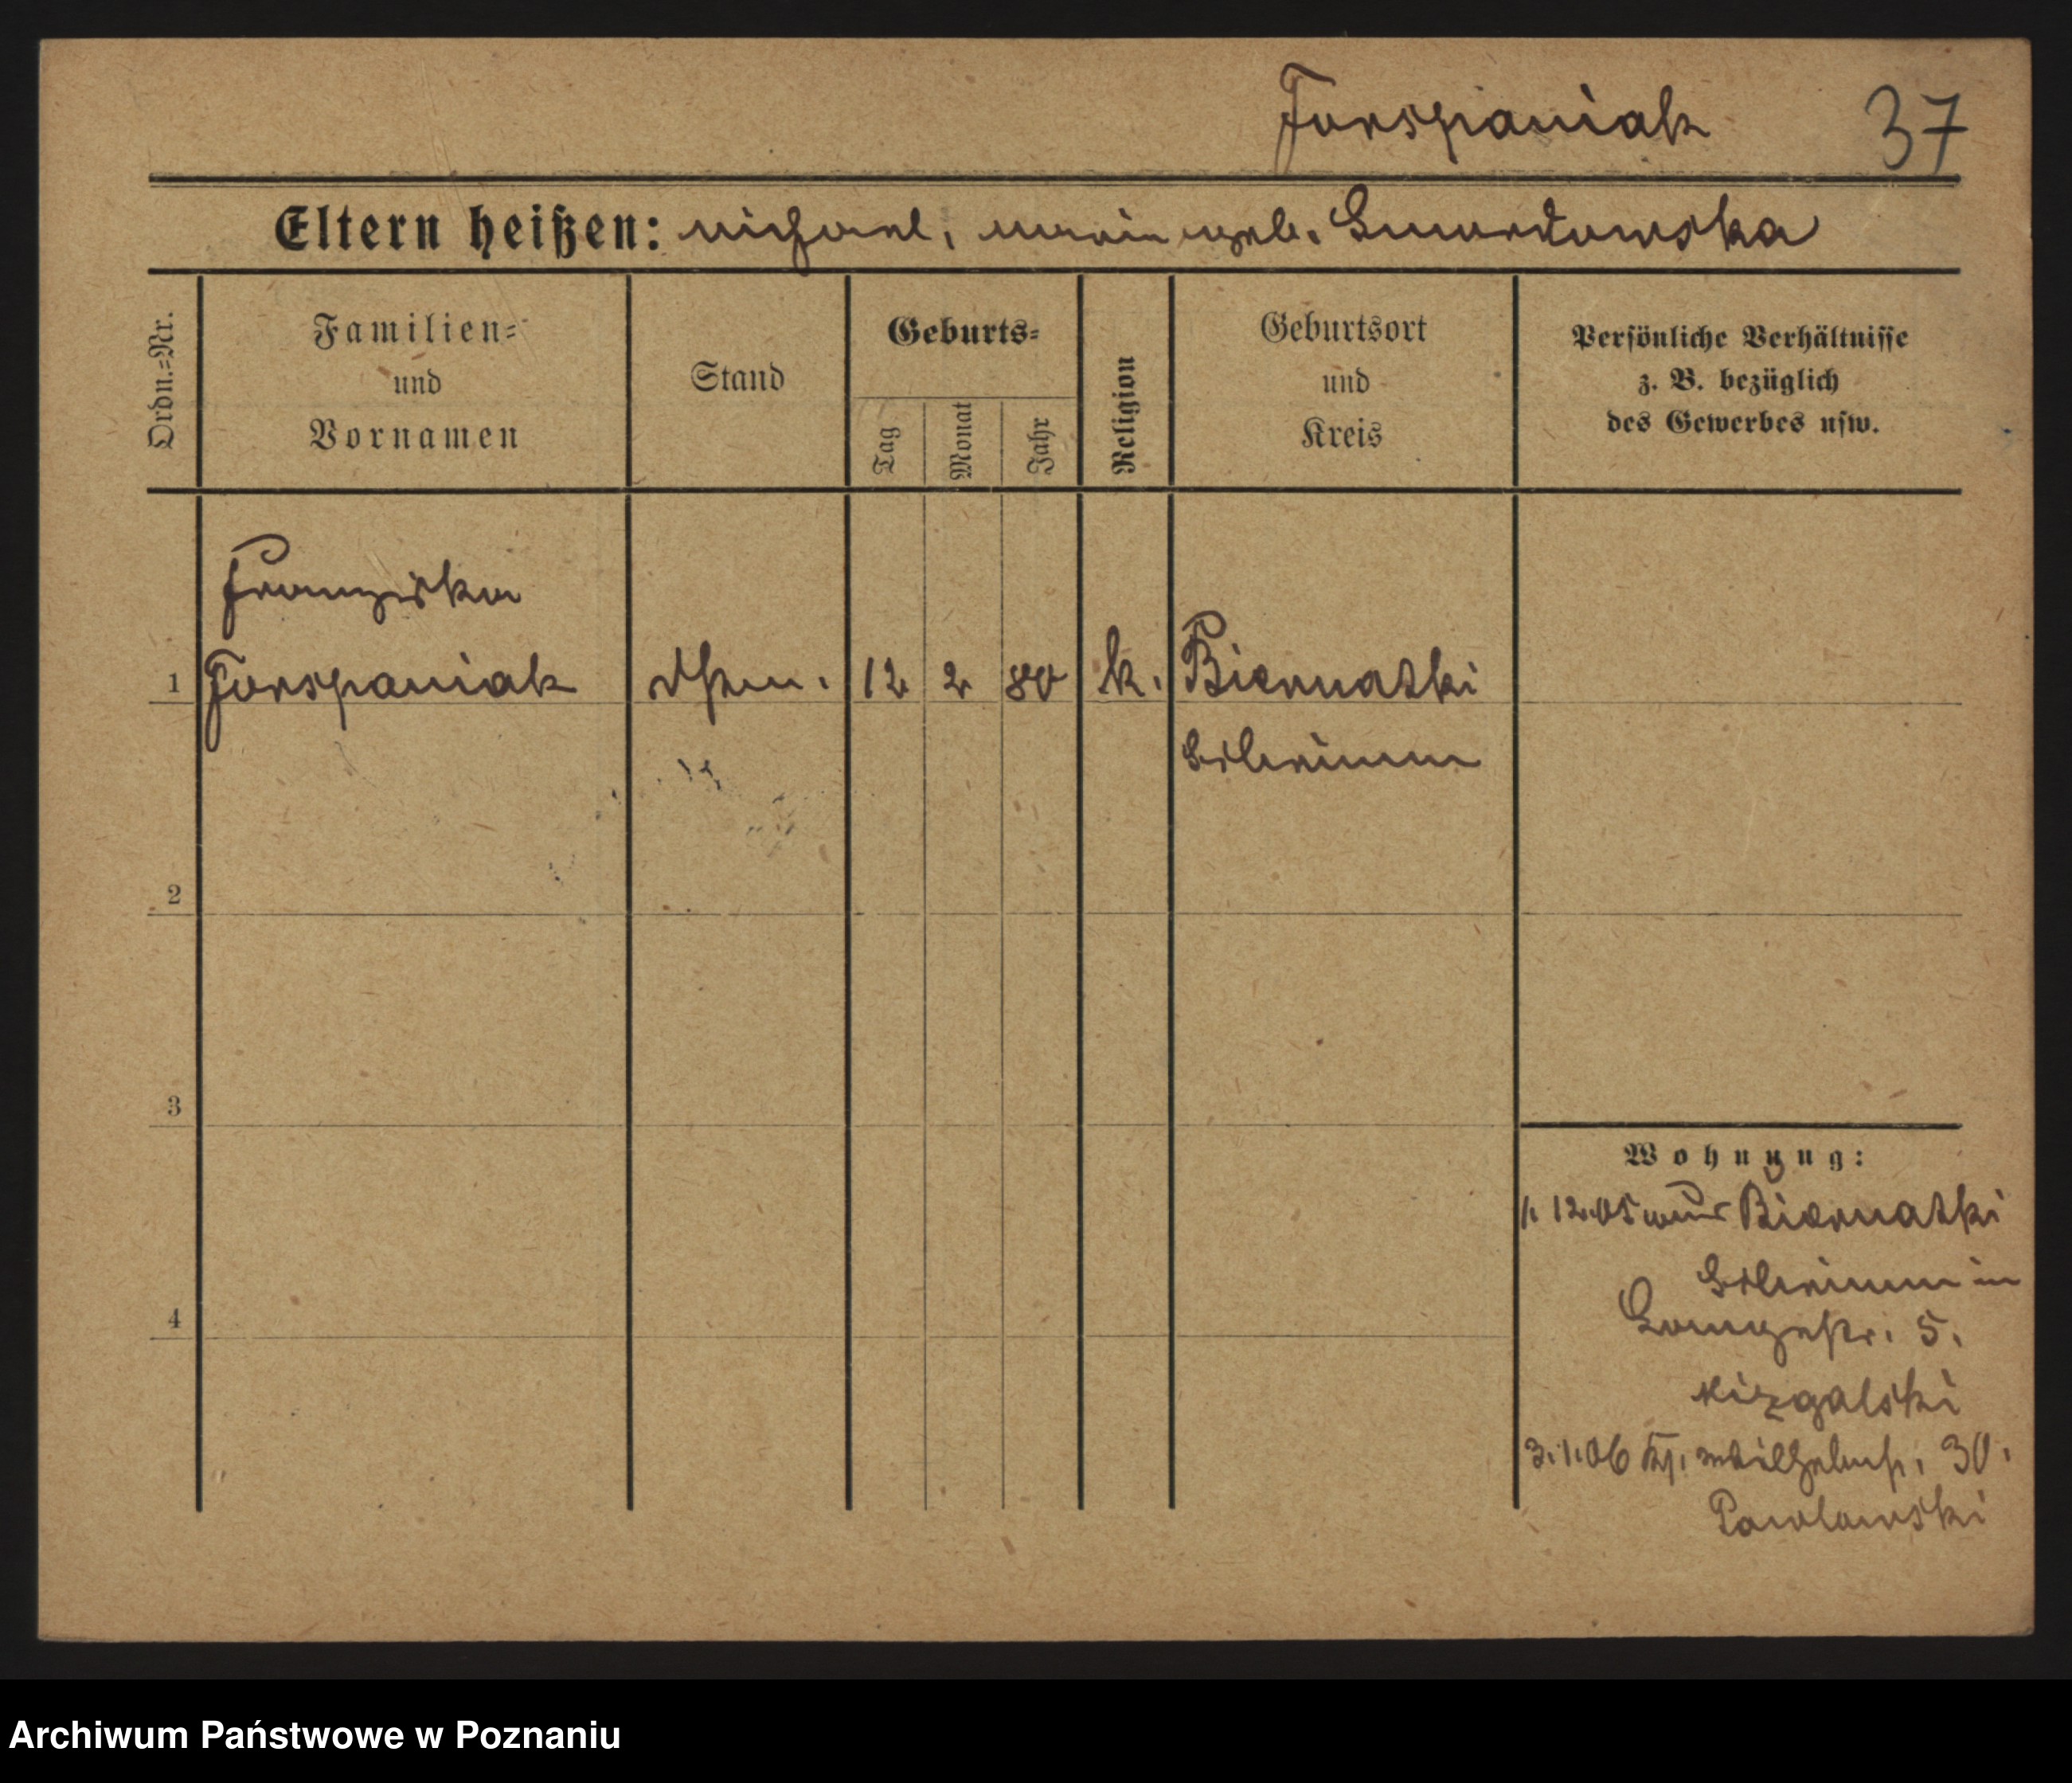 Forspaniak 37
Eltern heißen: Michael, Maria geb. Smardowska
Ordn.=Nr.
Familien=
und
Vornamen
Stand
Geburts=
Tag
Monat
Jahr
Religion
Geburtsort
und
Kreis
Persönliche Verhältnisse
z. B. bezüglich
des Gewerbes usw.
Franziska
1 Forspaniak 12 2 80 k. Biernatki
Schrimm
2
3
4
Wohnung:
1. 12. 05 aus Biernatki
Schrimm in
Langestr. 5.
Mizgalski
3. 1. 06 Wilhelmstr. 30.
Pawlowski
Archiwum Państwowe w Poznaniu